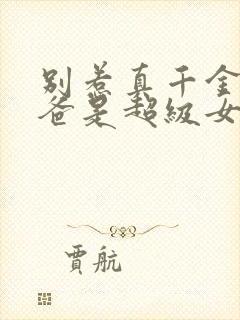 别惹真千金
爸是超级女
贾航